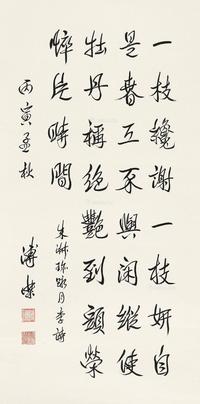 一枝纔謝一枝妍自
是春工不與闲縱使
牡丹稱絕艷到頭榮
瘁片時間
朱淑珍詠月季詩
丙寅孟秋
溥傑